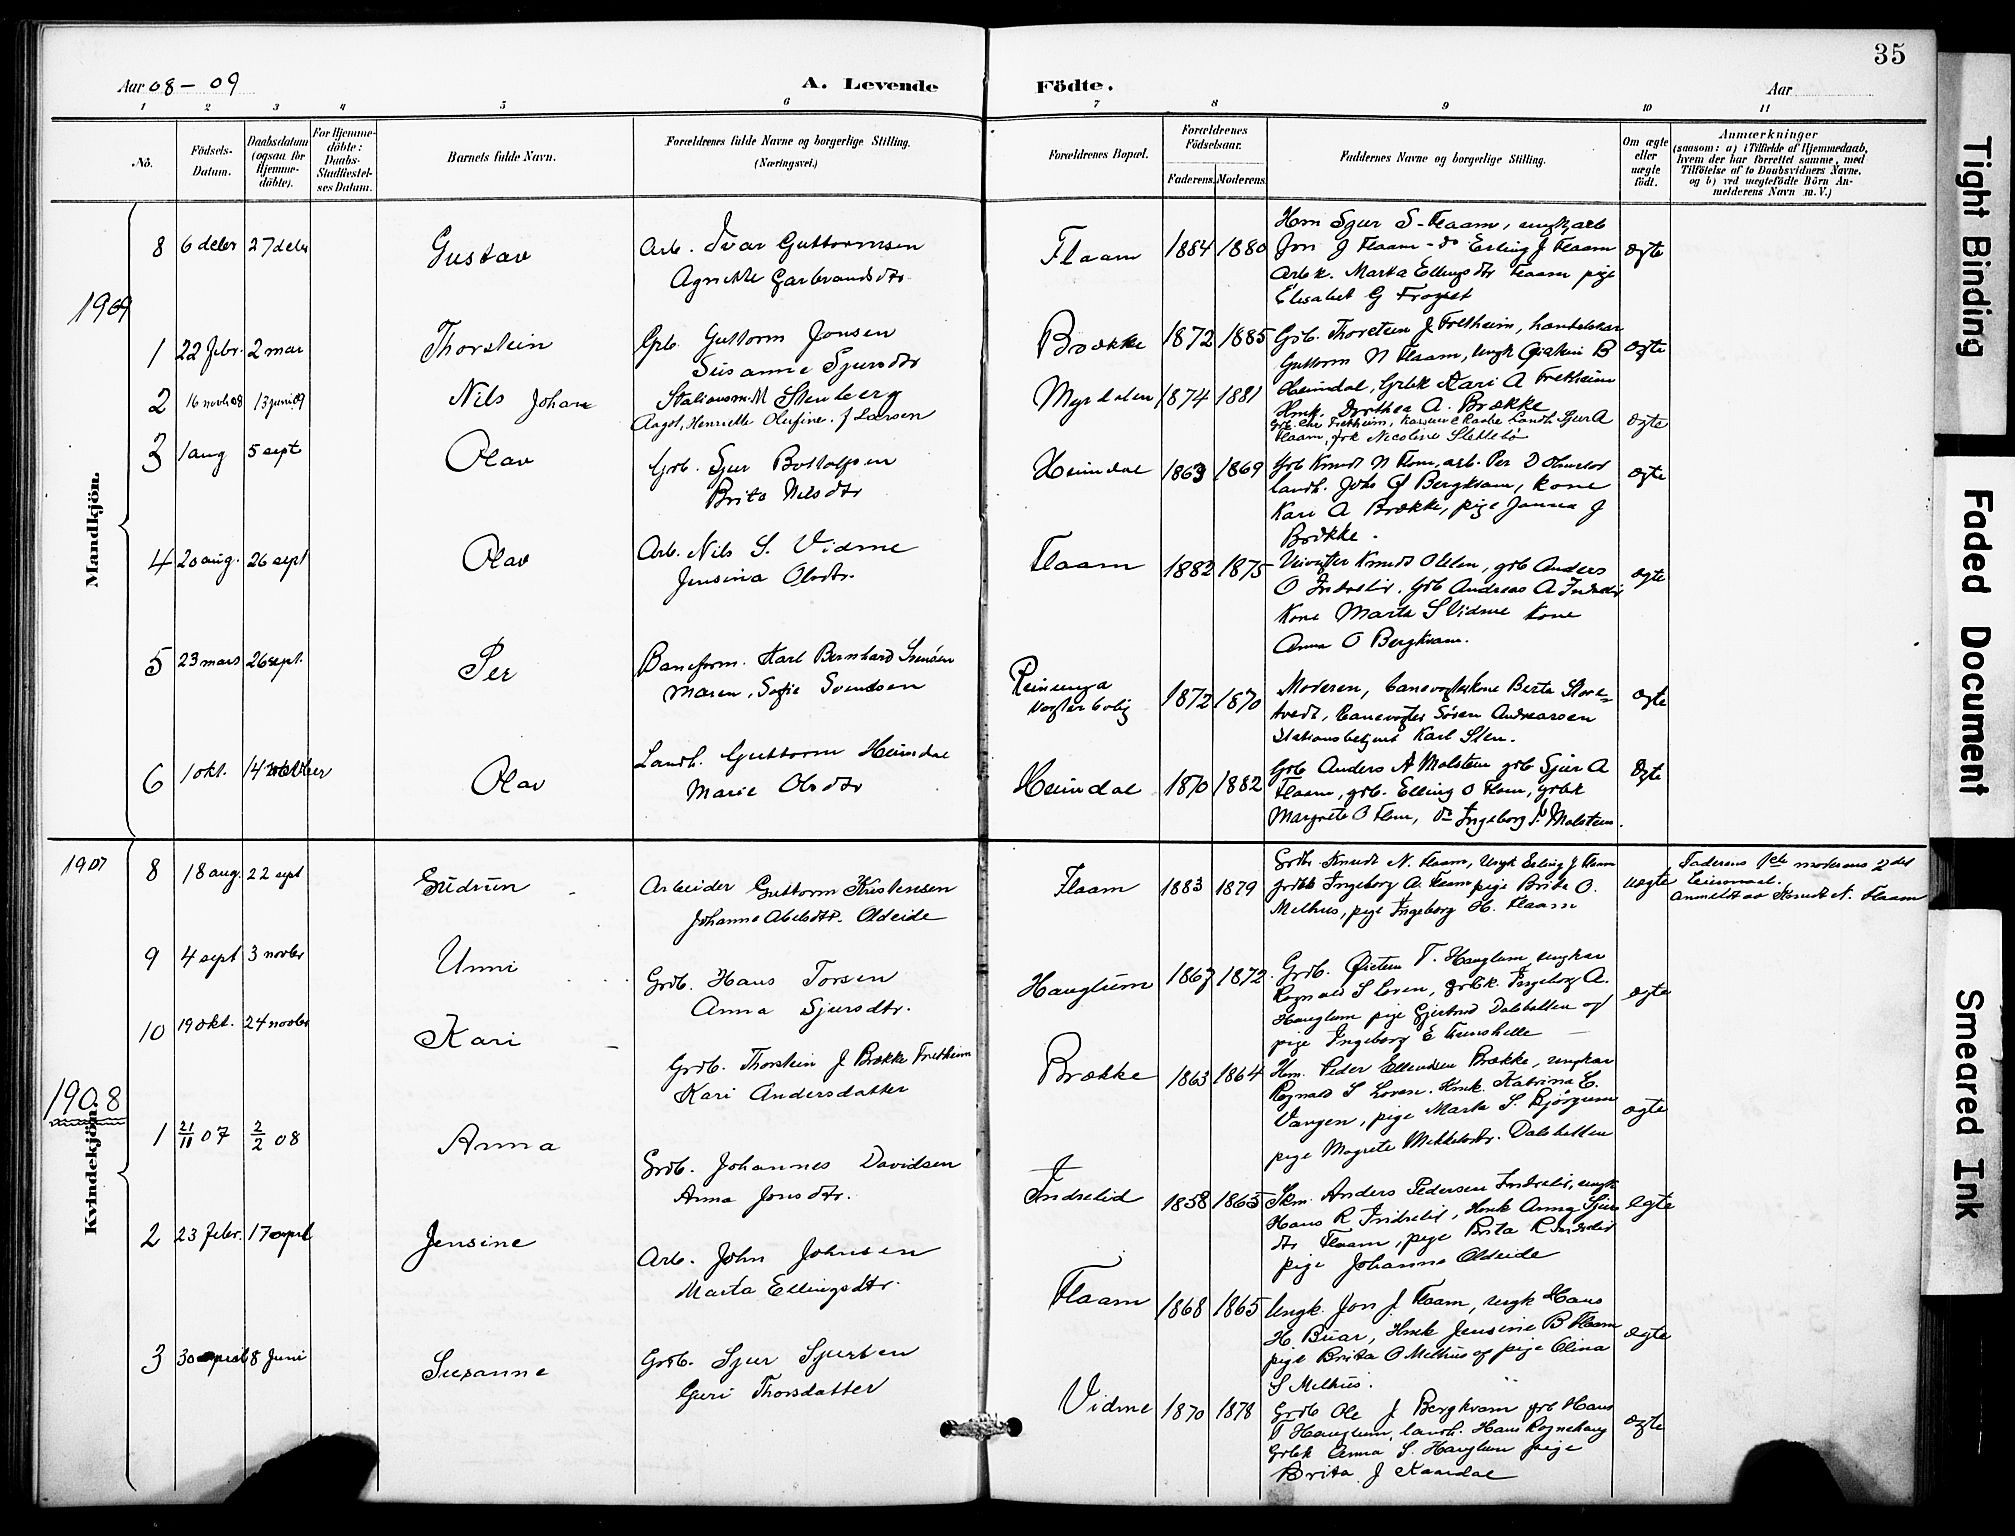 35
Aar 08 - 09
A. Levende
Födte.
Aar
1 2 3 4 5 6 7 8 9 10 11
No.
Födsels-Datum.
Daabsdatum (ogsaa for Hjemme-döbte).
For Hjemme-döbte: Daabs-Stadfæstel-ses Datum.
Barnets fulde Navn.
Forældrenes fulde Navne og borgerlige Stilling.
(Næringsvei.)
Forældrenes Bopæl.
Forældrenes Födselsaar.
Faderens. Moderens.
Faddernes Navne og borgerlige Stilling.
Om ægte eller uægte födt.
Anmærkninger
(saasom: a) i Tilfælde af Hjemmedaab, hvem der har forrettet samme, med Tilföielse af to Daabsvidners Navne, og b) ved uægtefödte Börn An-melderens Navn m. V.)
Mandkjön.
8 6 decbr 27 decbr Gustav Arb. Ivar Guttormsen Flaam 1884 1880 Hm Sjur S. Flaam, ungk arb ægte
Agnethe Garbrandsdtr. Jon J Flaam - do Erling J Flaam
Arb k. Marta Ellingsdtr Flaam pige
Elisabet G
1909
1 22 febr. 2 mar Thorstein Gb. Guttorm Jonsen Brække 1872 1885 Grb. Thorstein J Fretheim, ægte
Susanne Sjursdtr Guttorm N Flaam, ungk B
2 16 novb 08 13 juni 09 Nils Johan Stationsm. M Stenberg Myrdalen 1874 1881 Heimdal, Grbk Kari A Fretheim
Aagot, Henriette Olufine. f Larsen Hmk. Dorthea A. Brække
Fretheim, Landh. Sjur A ægte
Flaam, frk Nicoline
3 1 aug 5 sept Olav Grb. Sjur Bottolfsen Heimdal 1863 1869 Grb Knudt N Flom, arb. Per D ægte
Brita Nilsdtr landh. Johs Bergkvam, kone
Kari A Brække, pige Janna J
Brække.
4 20 aug. 26 sept Olav Arb. Nils S. Vidme Flaam 1882 1875 Knudt grb Anders ægte
Jensina Olsdtr. O Indrelid. Grb Andreas A Indrelid
Kone Marta S Vidme kone
Anna O Bergkvam.
5 23 mars 26 sept. Per Baneform. Karl Bernhard Svensen Reinunga vogterbolig 1872 1870 Moderen, banevogterkone Berta Store- ægte
Maren, Sofie Svendsen tvedt, banevogter Sören Andreassen
Stationsbetjent Karl Sten.
6 1 okt. 14 oktober Olav Landh. Guttorm Heimdal Heimdal 1870 1882 Grb Anders A Molstem grb Sjur A ægte
Marie Olsdtr Flaam, grb. Elling O Flom, grbk
Margrete O Flom, do Ingeborg Molstem.
Kvindekjön.
1907
8 18 aug. 22 sept Gudrun Arbeider Guttorm Kristensen Flaam 1883 1879 Grdbr. Knudt N. Flaam, Ungk Erling J Flaam uægte Faderens 1ste moderens 2det
Johanne Abelsdtr. Oldeide grdbk Ingeborg A. Flaam pige Brita O. Leiermaal.
Melhus, pige Ingeborg H. Flaam Anmeldt av Knudt N. Flaam
9 4 sept 3 novbr Unni Grdb. Hans Torsen Hauglum 1867 1872 Grdb. Öistein T. Hauglum, ungkar ægte
Anna Sjursdtr. Rognald S Loven, grbk. Ingeborg A.
Hauglum pige Gjertrud Dalsbotten og
pige Ingeborg E
10 19 okt. 24 novbr Kari Grdb. Thorstein J Brække Fretheim Brække 1863 1864 Hm. Peder Ellendsen Brække, ungkar ægte
Kari Andersdatter Rognald S Loven. Hmk. Katrina E.
Vangen, pige Marta S. Björgum
pige Magrete Mikkelsdtr. Dalsbotten
1908
1 21/11 07 2/2 08 Anna Grdb. Johannes Davidsen Indrelid 1858 1865 Anders Pedersen Indrelid, ungk ægte
Anna Jonsdtr. Hans R Indrelid, Hmk Anna Sjurs
dtr Flaam, pige Brita R Indrelid
pige Johanne Oldeide
2 23 febr. 17 april Jensine Arb. John Johnsen Flaam 1868 1865 Ungk. Jon J. Flaam, ungk Hans ægte
Marta Ellingsdtr. H. Buar, Hmk Jensine B Flaam
pige Brita O Melhus og pige Olina
S Melhus.
3 30 april 8 Juni Susanne Grdb. Sjur Sjursen Vidme 1870 1878 Grdb Ole J Bergkvam grb Hans ægte
Guri Thorsdatter T Hauglum, landh. Hans Rognehaug
Grbk Anna S. Hauglum pige
Brita J Kaardal
Tight Binding
Faded Document
Smeared Ink